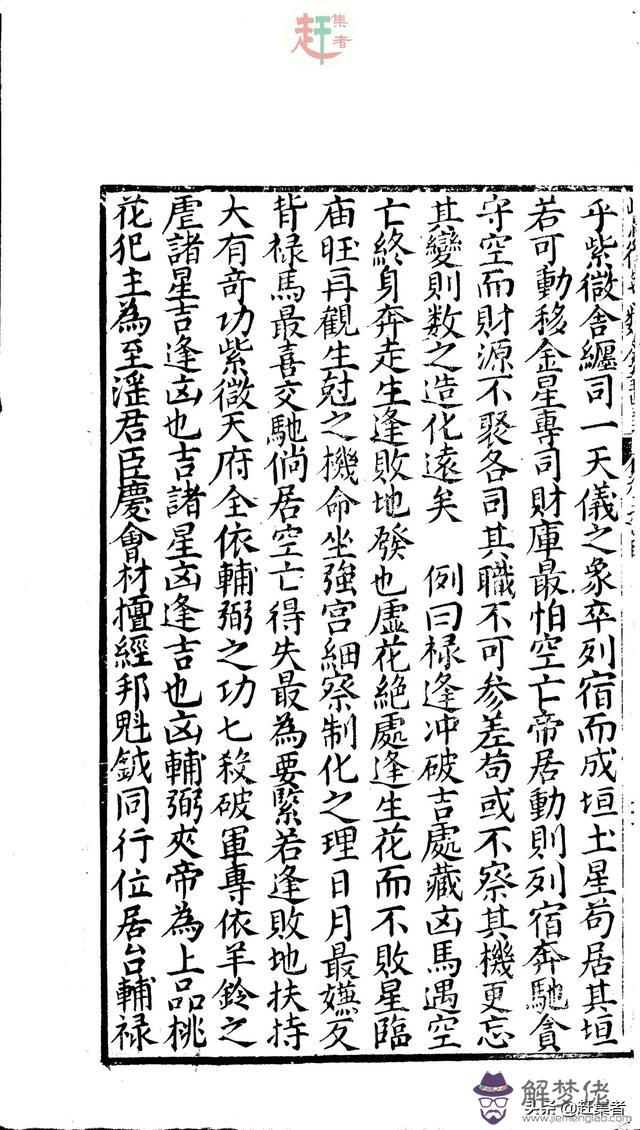 赶集者
乎紫微舍纏司一天儀之象卒列宿而成垣土星苟居其垣
若可動移金星專司財庫最怕空亡帝居動則列宿奔馳貪
守空而財源不聚各司其職不可參差苟或不察其機更忘
其變則数之造化遠矣　例曰祿逢冲破吉處藏凶馬遇空
亡終身奔走生逢敗地發也虛花絶處逢生花而不敗星臨
庙旺再觀生尅之機命坐強宫細察制化之理日月最嫌反
背禄馬最喜交馳倘居空亡得失最為要緊若逢敗地扶持
大有奇功紫微天府全依輔弼之功七殺破軍專依羊鈴之
虐諸星吉逢凶也吉諸星凶逢吉也凶輔弼夾帝為上品桃
花犯主為至滛君臣慶會材擅經邦魁鉞同行位居台輔禄
解梦佬
头条 @赶集者
www.jiemenglab.com